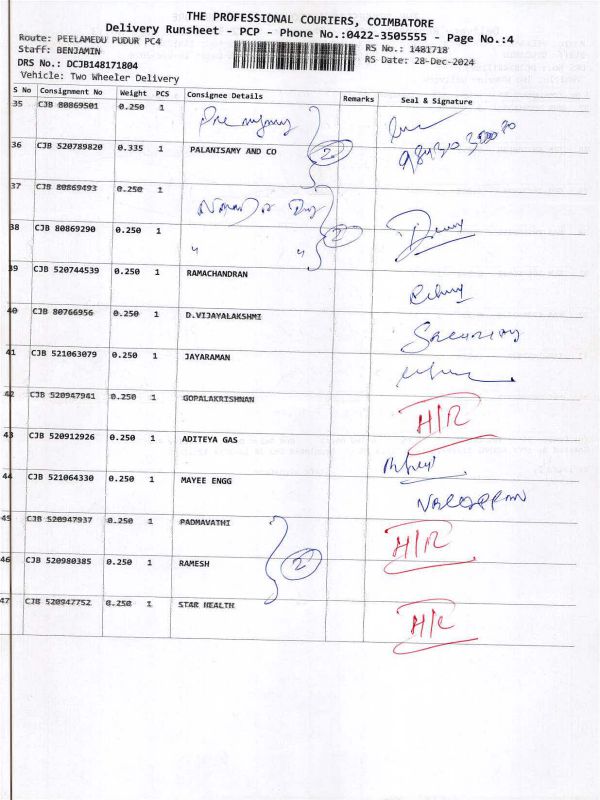 THE PROFESSIONAL COURIERS, COIMBATORE
Delivery Runsheet - PCP - Phone No.:0422-3505555 - Page No.:4
Route: PEELAMEDU PUDUR PC4
RS No.: 1481718
Staff: BENJAMIN
RS Date: 28-Dec-2024
DRS No.: DCJB148171804
Vehicle: Two Wheeler Delivery
S No Consignment No Weight PCS Consignee Details Remarks Seal & Signature
35 CJB 80869501 0.250 1
36 CJB 520789820 0.335 1 PALANISAMY AND CO 2
37 CJB 80869493 0.250 1
38 CJB 80869290 0.250 1 " " 2
39 CJB 520744539 0.250 1 RAMACHANDRAN
40 CJB 80766956 0.250 1 D.VIJAYALAKSHMI
41 CJB 521063079 0.250 1 JAYARAMAN
42 CJB 520947941 0.250 1 GOPALAKRISHNAN H/R
43 CJB 520912926 0.250 1 ADITEYA GAS
44 CJB 521064330 0.250 1 MAYEE ENGG
45 CJB 520947937 0.250 1 PADMAVATHI H/R
46 CJB 520980385 0.250 1 RAMESH 2
47 CJB 520947752 0.250 1 STAR HEALTH H/R